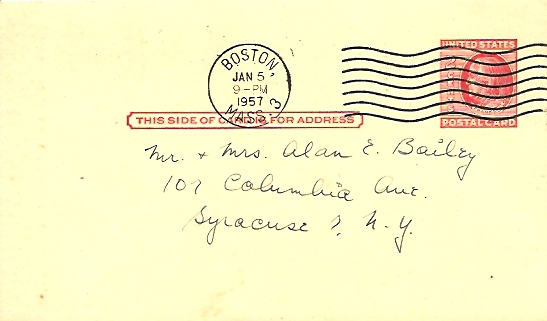 BOSTON
JAN 5
9-PM
1957
MASS. 3
UNITED STATES
POSTAL CARD
THIS SIDE OF CARD IS FOR ADDRESS
Mr. + Mrs. Alan E. Bailey
107 Columbia Ave.
Syracuse 7, N.Y.